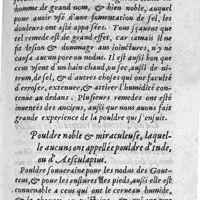 homme de grand nom, & bien noble, auquel
pour auoir vsé d'vne fomentation de sel, les
douleurs ont esté appaisées. Tous sçauent que
tel remede est de grand effet, car iamais il ne
fit lesion & dommage aux iointures, n'y ne
causa aucun pore ou nodus. Il est aussi bon que
on vse d'vn bain chaud, ou sec, aussi de ni-
trum, de sel, & d'autres choses qui ont faculté
d'erroser, extenuer, & attirer l'humidité con-
tenue au dedans. Plusieurs remedes ont esté
inuentés des anciens, ausquels nous auons fait
grande experience de la pouldre qui s'ensuit.
Pouldre noble & miraculeuse, laquel-
le aucuns ont appellée pouldre d'Inde,
ou d'Aesculapius.
Pouldre souueraine pour les nodus des Gout-
tes, & pour les enflures des pieds, aussi elle est
conuenable a ceux qui ont le cerueau humide,